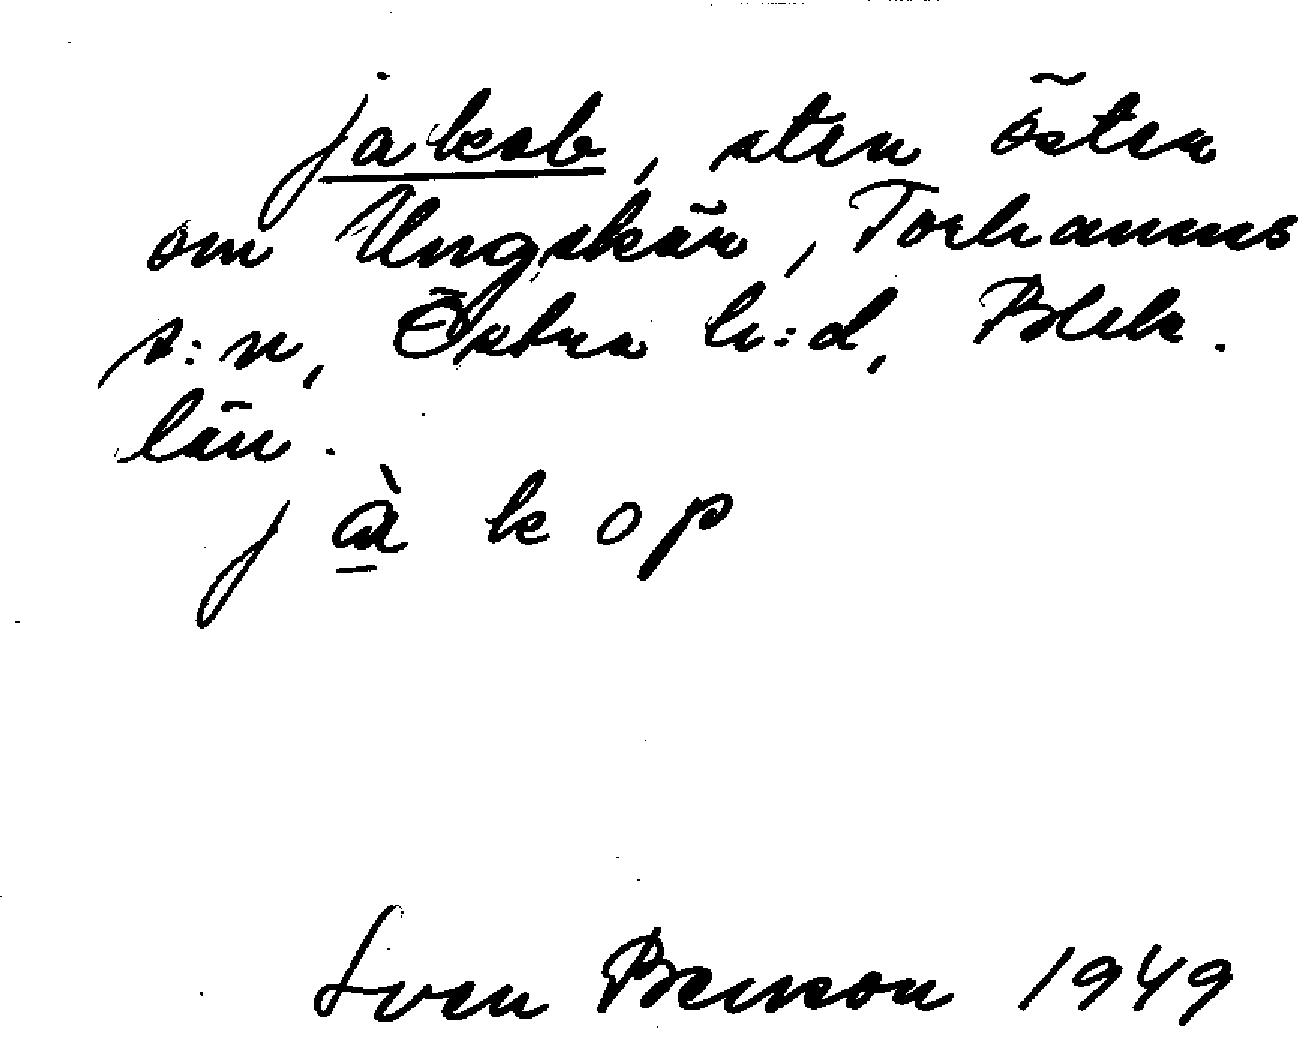 jakob, sten östen
om Ungskär, Torhamns
s:n, Östra h:d, Blek.
län.
j à k o p
Sven Benson 1949